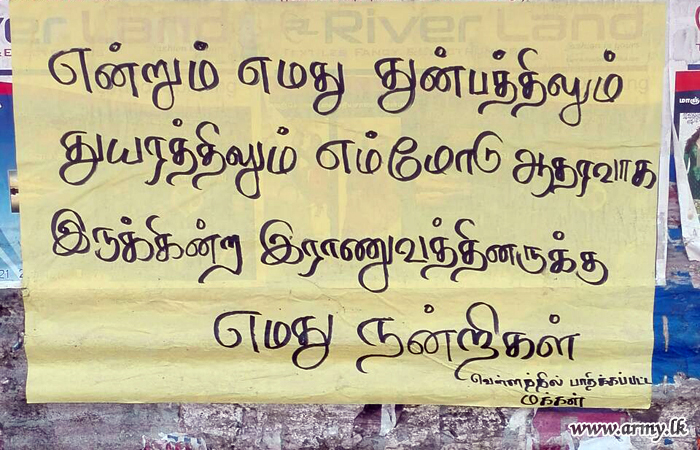 River Land
என்றும் எமது துன்பத்திலும்
துயரத்திலும் எம்மோடு ஆதரவாக
இருக்கின்ற இராணுவத்தினருக்கு
எமது நன்றிகள்
வெள்ளத்தில் பாதிக்கப்பட்ட
மக்கள்
www.army.lk